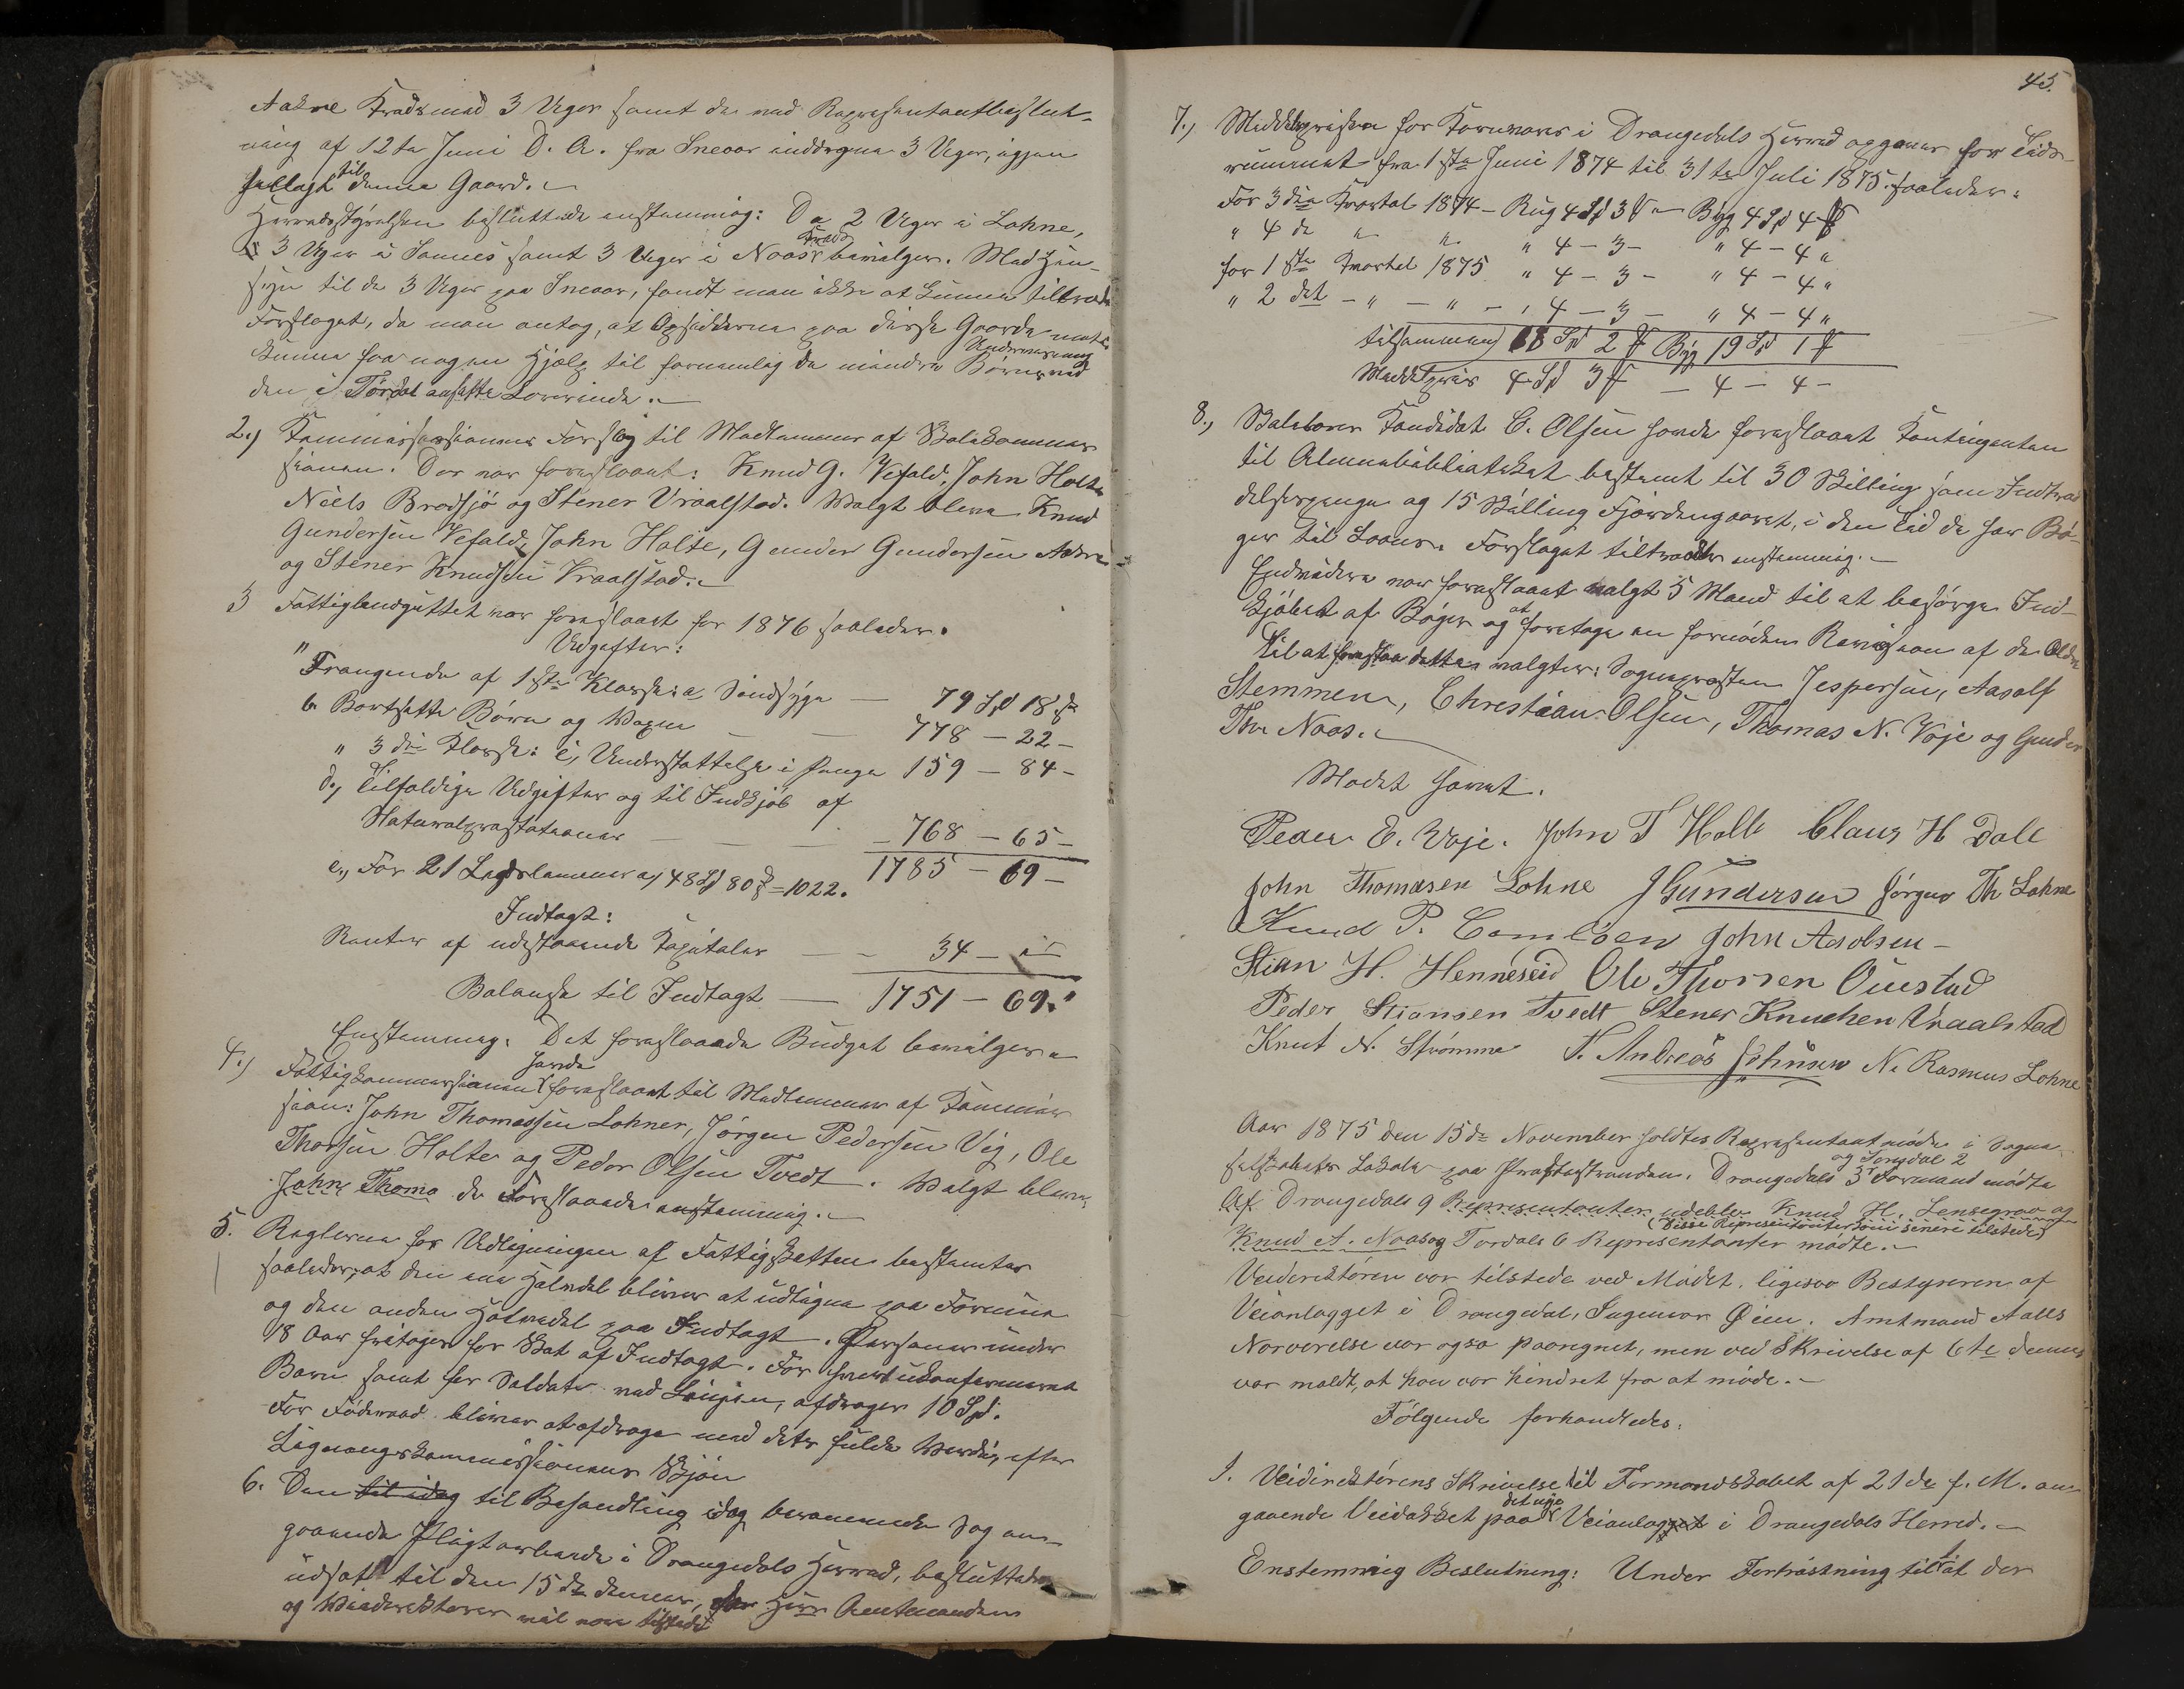 Aakre Kreds med 3 Uger samt de ved Repræsentantbeslut-
ning af 12te Juni D. A. fra Sneaas inddragne 3 Uger, igjen
henlagt til denne Gaard.
Herredsstyrelsen besluttede enstemmig: De 2 Uger i Lohne,
3 Uger i Sannes samt 3 Uger i Naas Kreds bevilges. Med Hen-
syn til de 3 Uger paa Sneaas, fandt man ikke at kunne tiltræde
Forslaget, da man antog, at Opsidderne paa disse Gaarde
kunne faa nogen Hjælp til fornemlig de mindre Børns Undervisning ved
den i Tørdal ansatte Lærerinde.
2.) Kommissionens Forslag til Medlemmer af Skolekommis-
sionen. Der var foreslaaet: Knud G. Vefald, John Holte
Niels Brødsjø og Stener Vraalstad. Valgt bleve Knud
Gundersen Vefald, John Holte, Gunder Gundersen Aakre
og Stener Knudsen Vraalstad.
3 Fattigbudgettet var foreslaaet for 1876 saaledes.
Udgifter:
" Trængende af 1ste Klasse: a, Sindsyge — 79 Spd 18 s
b. Bortsatte Børn og Voxne — — 778 — 22 —
" 3die Klasse: c, Understøttelse i Penge 159 — 84 —
d., Tilfældige Udgifter og til Indkjøb af
Naturalpræstationer — — — 768 — 65 —
1785 — 69 —
e., For 21 Lægdslemmer a, 48 Spd 80 s = 1022.
Indtægt:
Renter af udestaaende Kapitaler — — 34 —
Balanse til Indtægt — 1751 — 69 "
Enstemmig: Det foreslaaede Budget bevilges
4.) Fattigkommissionen havde foreslaaet til Medlemmer af Kommis-
sion: John Thomassen Lohne, Jørgen Pedersen Vig, Ole
Thorsen Holte og Peder Olsen Tvedt. Valgt bleve
John Thoma de Foreslaaede enstemmig.
5. Reglerne for Udligningen af Fattigskatten bestemtes
saaledes, at den ene Halvdel bliver at udligne paa Formue
og den anden Halvdel paa Indtægt. Personer under
18 Aar fritages for Skat af Indtægt. For hvert ukonfirmeret
Barn samt for Soldater ved Linjen, afdrages 10 Spd.
For Føderaad bliver at afdrage med dets fulde Værdi, efter
Ligningskommissionens Skjøn
6. Den til idag til Behandling idag berammede Sag an-
gaaende Pligtarbeide i Drangedals Herred, besluttedes
udsat til den 15de dennes, da Herr Amtmanden
og Veidirektøren vil være tilstede
45.
7., Middelpriserne for Kornvarer i Drangedals Herred opgaves for Tids-
rummet fra 1ste Juni 1874 til 31te Juli 1875. saaledes:
For 3die Kvartal 1874 — Rug 4 Spd 3 — Byg 4 Spd 4
" 4de " " " 4 — 3 — " 4 — 4 "
for 1ste Kvartal 1875 " 4 — 3 — " 4 — 4 "
" 2det — " — " — " 4 — 3 — " 4 — 4 "
tilsammen 18 Spd 2 Byg 19 Spd 1
Middelpris 4 Spd 3 — 4 — 4 —
8., Skolelærer Kandidat C. Olsen havde foreslaaet Kontingenten
til Almuebibliotheket bestemt til 30 Skilling som Indtræ-
delsespenge og 15 Skilling Fjerdingaaret, i den Tid de har Bø-
ger til Laans. Forslaget tiltraadtes enstemmig.
Endvidere var foreslaaet valgt 5 Mand til at besørge Ind-
kjøbet af Bøger og at foretage en fornøden Revision af de Ældre
Til at forestaa dette valgtes: Sognepræsten Jespersen, Aasolf
Stemmen, Christian Olsen, Thomas N. Voje og Gunder
Th. Naas.
Mødet hævet.
Peder E. Voje. John T Holte Claus H Dale
John Thomasen Lohne J Gundersen Jørgen Th Lohne
Knud P. John Aasolsen —
Stian H. Henneseid Ole Thorsen Ouestad
Peder Stiansen Tvedt Stener Knudsen Vraalstad
Knut N. Strømme T. Andreas Johnsen N. Rasmus Lohne
Aar 1875 den 15de November holdtes Repræsentantmøde i Sogne-
selskabets Lokale paa Præstestranden. Drangedals 3 og Tørdal 2 Formænd mødte
Af Drangedals 9 Representanter udeblev Knud H. Lensegrav og
Knud A. Naas (disse Representanter som senere tilstede) og Tørdals 6 Representanter mødte.
Veidirektøren var tilstede ved Mødet, ligesaa Bestyreren af
Veianlægget i Drangedal, Ingeniør Øien. Amtmand Aalls
Nærværelse var ogsa paaregnet, men ved Skrivelse af 6te dennes
var meldt, at han var hindret fra at møde. —
Følgende forhandledes:
1. Veidirektørens Skrivelse til Formandskabet af 21de f. M. an-
gaaende Veidækket paa det nye Veianlæg i Drangedals Herred. —
Enstemmig Beslutning: Under Fortrøstning til at der